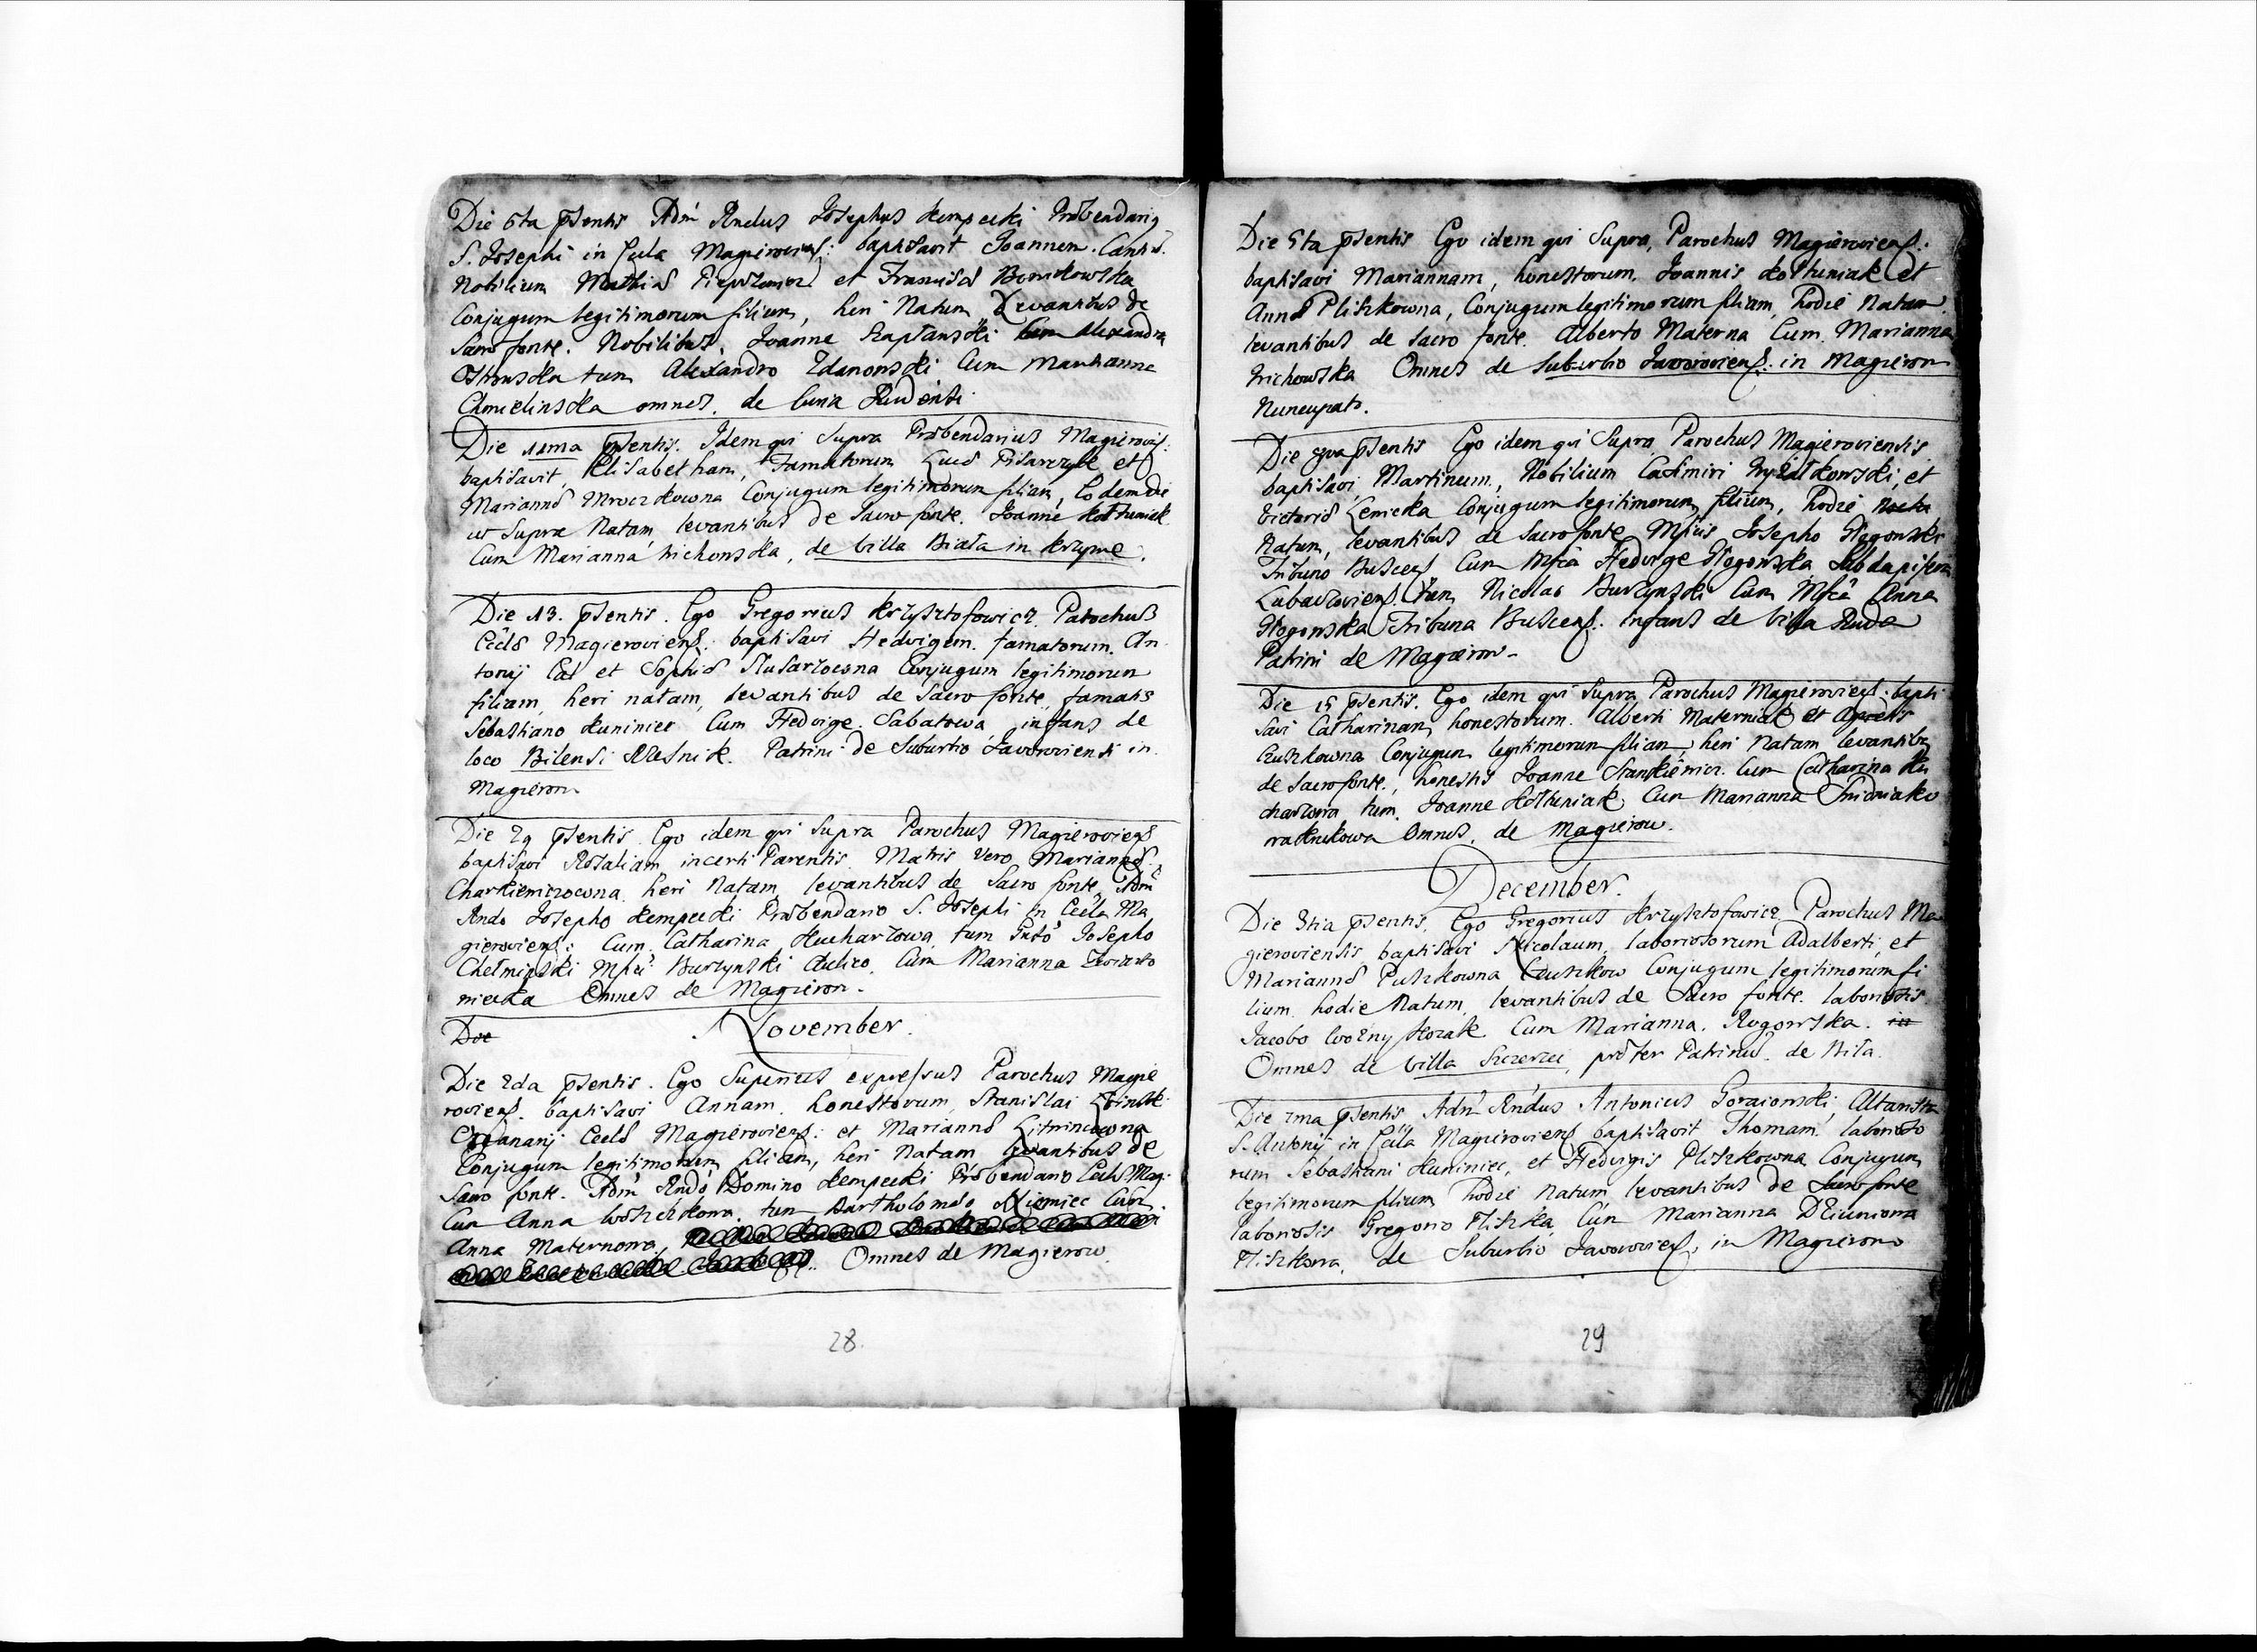 Die 6ta psentis Adm Rndus Josephus Kempecki Præbendarig
S. Josephi in Ccula Magierovienς: baptisavit Joannem. Cantiū.
Nobilium Mathiæ et Franciscæ Bonikowska
Conjugum legitimorum filium, heri Natum, Levantibus de
Sacro fonte. Nobilibus, Joanne Szaptanski cum Alexandra
Ostrowska tum Alexandro Zdanowski Cum Marianna
Chmielinska omnes. de Curia Rudensi.
Die 11ma psentis. Idem qui Supra Præbendarius Magierovis:
baptisavit, Elisabetham, Famatorum Lucæ Pisarczyk et
Mariannæ Mroczkowna Conjugum legitimorum filiam, Eodem die
ut Supra Natam, levantibus de Sacro fonte. Joanne Kothuniak
Cum Marianna Wichowska, de Villa Biała in Krzywe.
Die 13. psentis. Ego Gregorius Krzysztofowicz. Parochus
Cclæ Magierovienς: baptisavi Hedvigem. famatorum. An
tonij Cal et Sophiæ Slusarzowna Conjugum legitimorum
filiam, heri natam, levantibus de Sacro fonte, famatis
Sebastiano Kuniniec Cum Hedvige. Sabatowa, infans de
loco Bilensi Patrini de Suburbio Javoroviensi in
Magierow
Die 29 psentis. Ego idem qui Supra Parochus Magierovienς
baptisavi Rosaliam incerti Parentis Matris Vero Mariannæ
Charkiewiczowna heri Natam, levantibus de Sacro fonte, Adm
Rndo Josepho Kempecki Præbendario S. Josephi in Ccla Ma
gierovienς: Cum. Catharina Kucharzowa, tum Gnso Josepho
Chełminski Mfci Burzynski Aulico, Cum Marianna
niecka Omnes de Magierow.
Die
November.
Die 2da psentis. Ego Superius expressus Parochus Magie
rovienς. baptisavi Annam. honestorum, Stanislai
Organarij Cclæ Magierovienς: et Mariannæ
Conjugum legitimorum filiam, heri Natam levantibus de
Sacro fonte. Adm Rndo Domino Kempecki Præbendario Cclæ Mag.
Cum Anna Woszczkowa, tum Bartholomæo Niemiec Cum
Anna Maternowa, Omnes de Magierow
28.
Die 5ta psentis Ego idem qui Supra, Parochus Magierovienς.
baptisavi Mariannam, honestorum. Joannis Kothuniak et
Annæ Pliszkowna, Conjugum legitimorum filiam, hodie Natam
levantibus de Sacro fonte. Alberto Materna Cum. Marianna
Wichowska Omnes de Suburbio Javorovienς: in Magierow
Nuncupato.
Die psentis Ego idem qui Supra Parochus Magieroviensis
baptisavi Martinum, Nobilium Casimiri et
Victoriæ Lenicka Conjugum legitimorum, filium, hodie
Natum, levantibus de Sacro fonte Mfcis Josepho Głogowski
Tribuno Buscenς Cum Mfca Hedvige Głogowska Subdapifera
Lubaczovienς. tum Nicolao Burzynski Cum Mfca Anna
Głogowska Tribuna Buscenς. infans de Villa Ruda
Patrini de Magierow.
Die 15 psentis. Ego idem qui Supra Parochus Magierovienς. bapti
savi Catharinam, honestorum. Alberti Materniak et Agnetis
Guszkowna Conjugum legitimorum filiam, heri Natam levantibg
de Sacro fonte. honestis Joanne Stankiewicz. Cum Catharina Ku
charzowa tum. Joanne Kothuniak, Cum Marianna
Omnes, de Magierow.
December.
Die 3tia psentis, Ego Gregorius Krzysztofowicz. Parochus Ma
gieroviensis baptisavi Nicolaum, laboriosorum Adalberti, et
Mariannæ Puszkowna Guszkow Conjugum legitimorum fi
lium. hodie Natum, levantibus de Sacro fonte. laboriosis
Jacobo Wozny Kozak Cum Marianna. Rogowska. in
Omnes de Villa Szczerzec, præter Patrinus. de Biła.
Die 7ma psentis, Adm Rndus Antonius Goraiowski, Altarista
S. Antonij in Ccla Magierovienς baptisavit Thomam. laborioso
rum Sebastiani Kuniniec, et Hedvigis Pliszkowna Conjugum
legitimorum filium hodie Natum levantibus de Sacro fonte
laboriosis Gregorio Pliszka, Cum Marianna Dziuniowa
Pliszkowa, de Suburbio Javorovienς, in Magierow
29